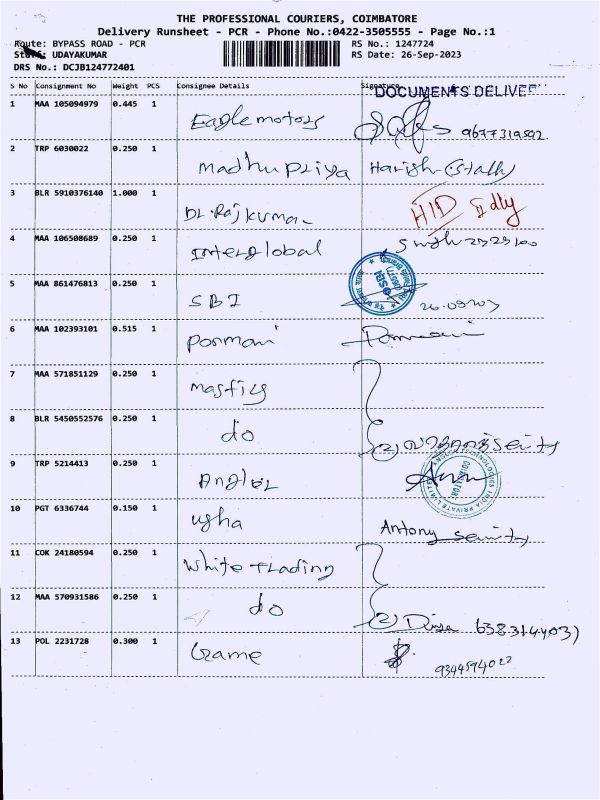 THE PROFESSIONAL COURIERS, COIMBATORE
Delivery Runsheet - PCR - Phone No.:0422-3505555 - Page No.:1
Route: BYPASS ROAD - PCR RS No.: 1247724
Staff: UDAYAKUMAR RS Date: 26-Sep-2023
DRS No.: DCJB124772401
S No Consignment No Weight PCS Consignee Details Signature
DOCUMENTS DELIVE
1 MAA 105094979 0.445 1 Eagle motors 9677319592
2 TRP 6030022 0.250 1 madhu priya Harish (staff)
3 BLR 5910376140 1.000 1 Dr. Rajkumar
4 MAA 106508689 0.250 1 Interglobal
5 MAA 861476813 0.250 1 SBI SBI
6 MAA 102393101 0.515 1 Pormani
7 MAA 571851129 0.250 1
8 BLR 5450552576 0.250 1 do (2)
9 TRP 5214413 0.250 1
10 PGT 6336744 0.150 1 ugha Antony
11 COK 24180594 0.250 1 White trading
12 MAA 570931586 0.250 1 do (2)
13 POL 2231728 0.300 1 Game